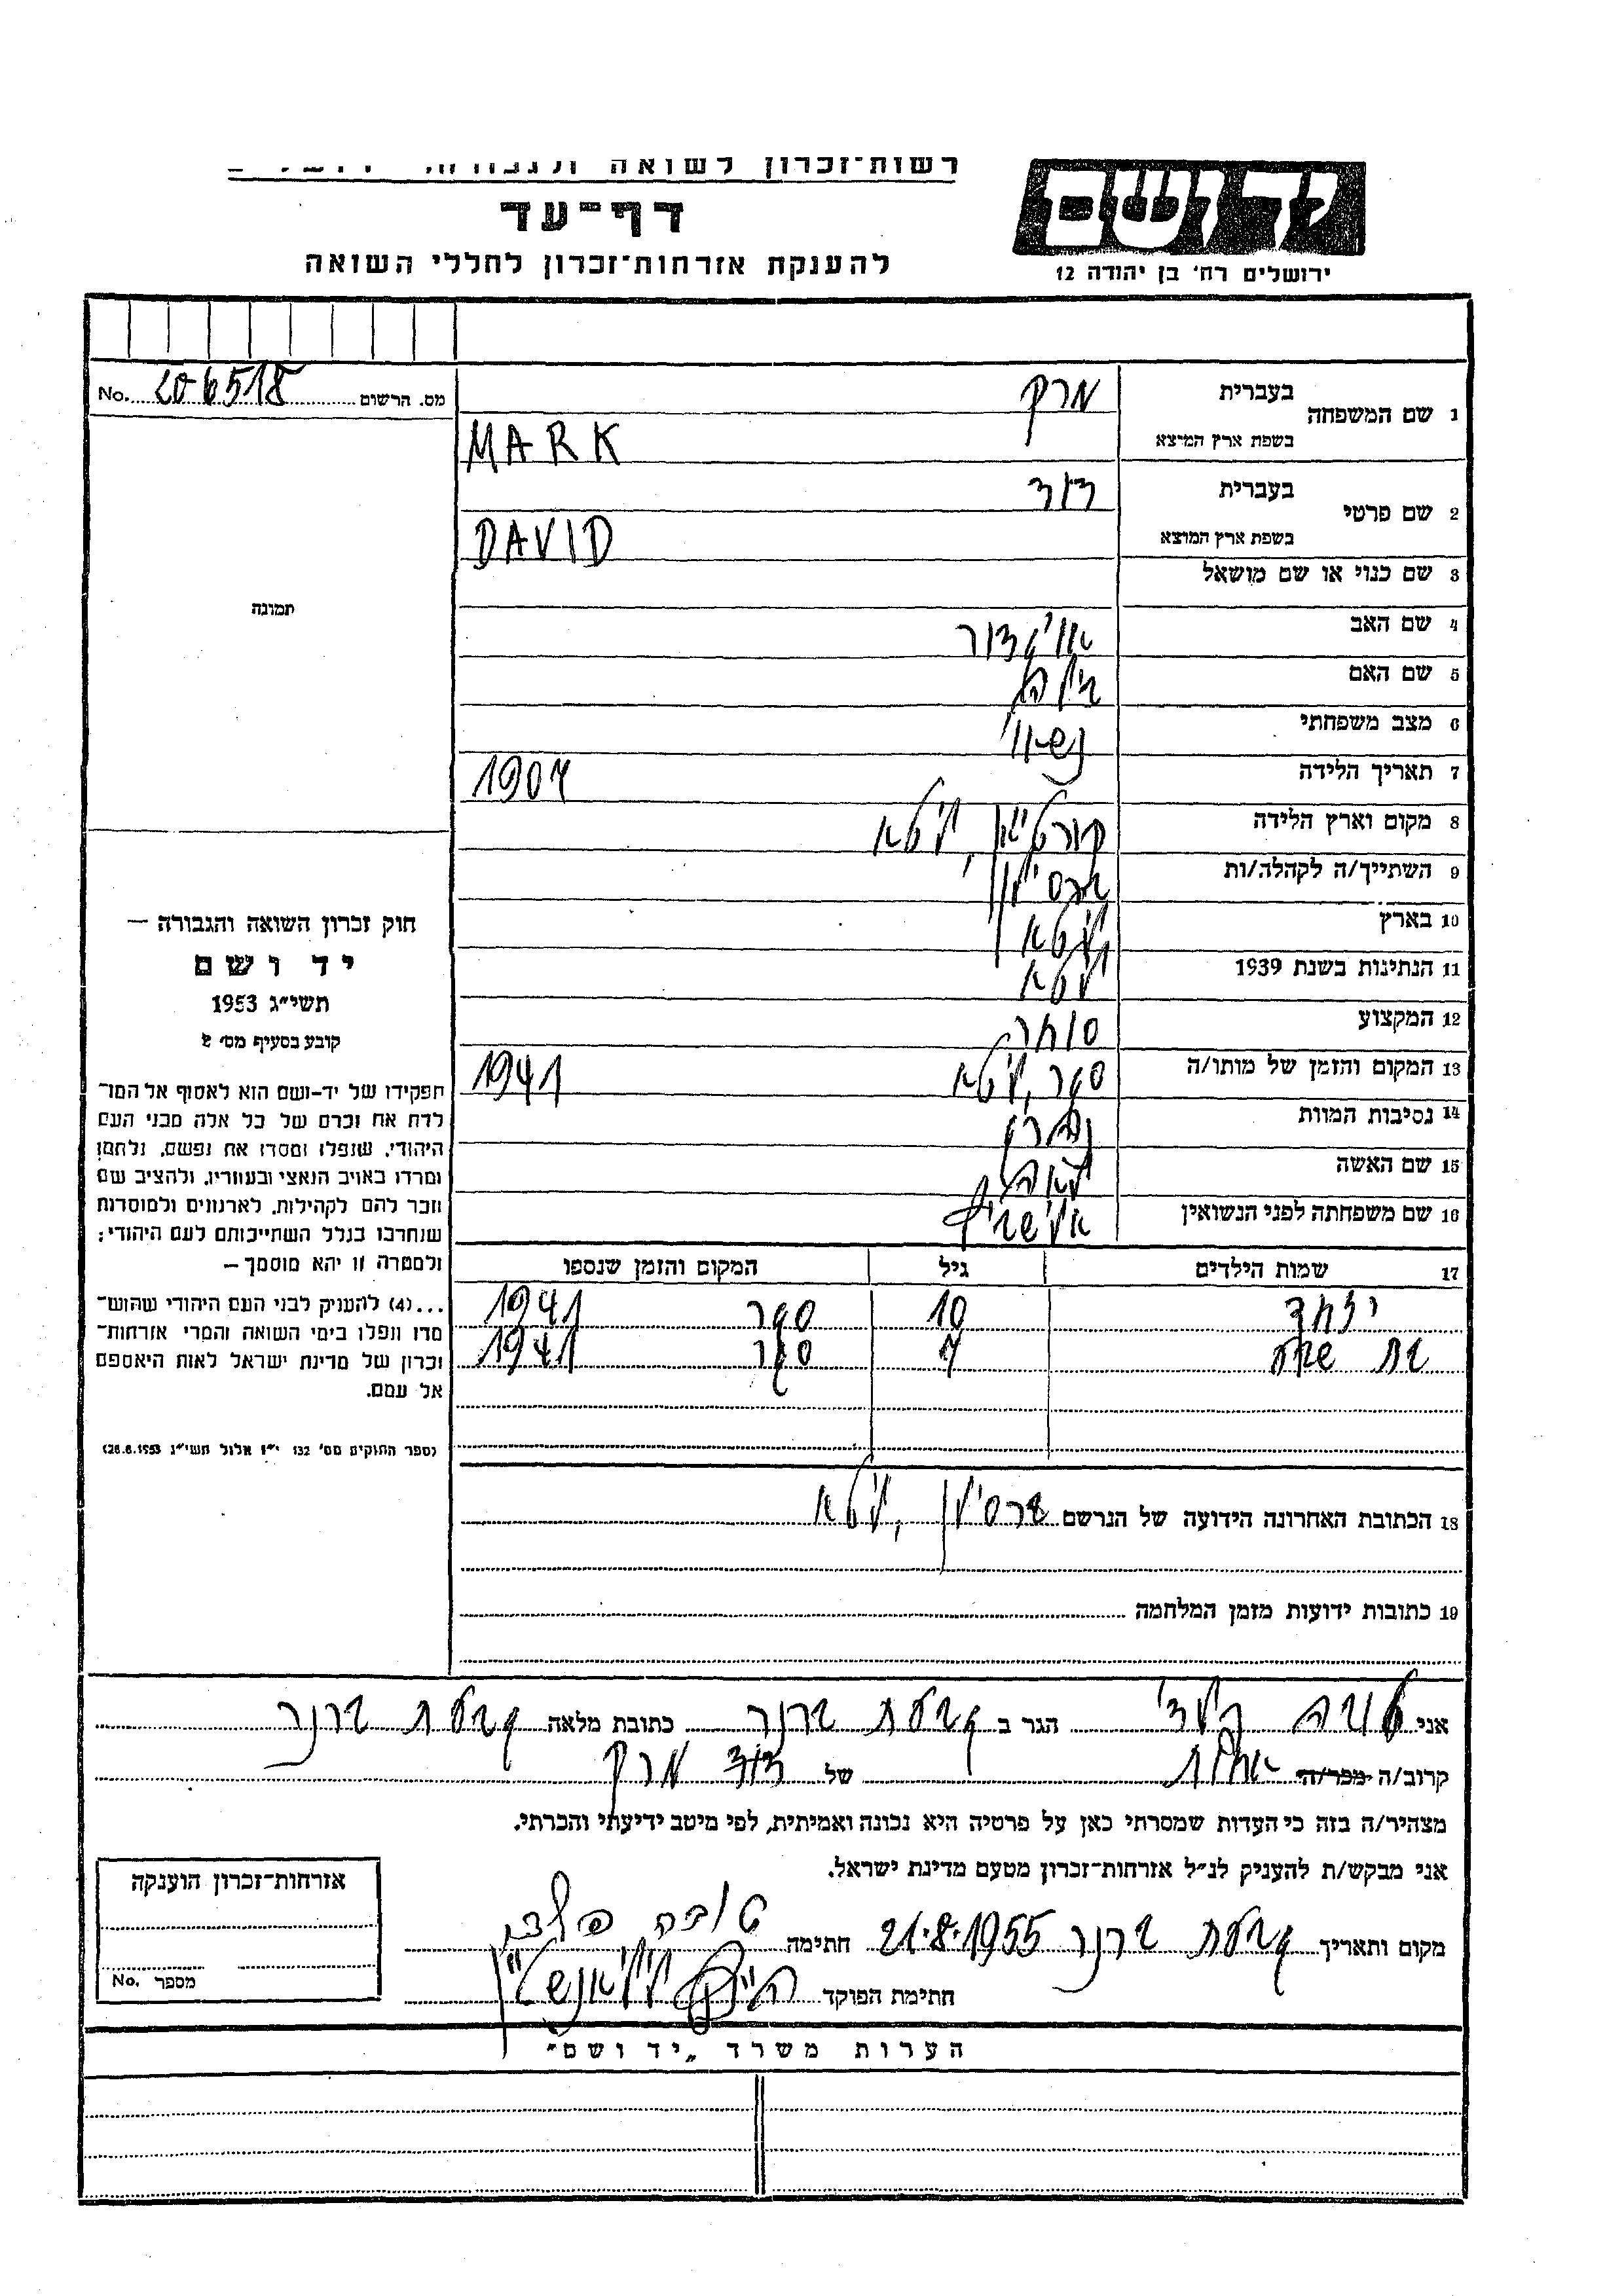 רשות־זכרון לשואה
יד ושם
דף־עד
להענקת אזרחות־זכרון לחללי השואה
ירושלים רח' בן יהודה 12
No. 206518 מס. הרשום
1 שם המשפחה בעברית מרק
בשפת ארץ המוצא MARK
2 שם פרטי בעברית דוד
בשפת ארץ המוצא DAVID
3 שם כנוי או שם מושאל
תמונה
4 שם האב אויגדור
5 שם האם
6 מצב משפחתי נשוי
7 תאריך הלידה 1907
8 מקום וארץ הלידה ליטא
9 השתייך/ה לקהלה/ות
10 בארץ ליטא
11 הנתינות בשנת 1939 ליטא
12 המקצוע סוחר
13 המקום והזמן של מותו/ה ליטא 1941
14 נסיבות המוות
15 שם האשה לאה
16 שם משפחתה לפני הנשואין
17 שמות הילדים גיל המקום והזמן שנספו
10 1941
בת שבע 7 1941
חוק זכרון השואה והגבורה —
יד ושם
תשי״ג 1953
קובע בסעיף מס׳ 2
תפקידו של יד-ושם הוא לאסוף אל המו־
לדת את זכרם של כל אלה מבני העם
היהודי, שנפלו ומסרו את נפשם, נלחמו
ומרדו באויב הנאצי ובעוזריו, ולהציב שם
וזכר להם לקהילות, לארגונים ולמוסדות
שנחרבו בגלל השתייכותם לעם היהודי;
ולמטרה זו יהא מוסמך —
...(4) להעניק לבני העם היהודי שהוש־
מדו ונפלו בימי השואה והמרי אזרחות־
זכרון של מדינת ישראל לאות היאספם
אל עמם.
(ספר החוקים מס׳ 132 י״ז אלול תשי״ג 28.8.1953)
18 הכתובת האחרונה הידועה של הנרשם ליטא
19 כתובות ידועות מזמן המלחמה
אני טובה הגר ב גבעת ברנר כתובת מלאה גבעת ברנר
קרוב/ה מכר/ה אחות של דוד מרק
מצהיר/ה בזה כי העדות שמסרתי כאן על פרטיה היא נכונה ואמיתית, לפי מיטב ידיעתי והכרתי.
אני מבקש/ת להעניק לנ״ל אזרחות־זכרון מטעם מדינת ישראל.
מקום ותאריך גבעת ברנר 21.8.1955 חתימה טובה
חתימת הפוקד
אזרחות־זכרון הוענקה
מספר No.
הערות משרד „יד ושם״